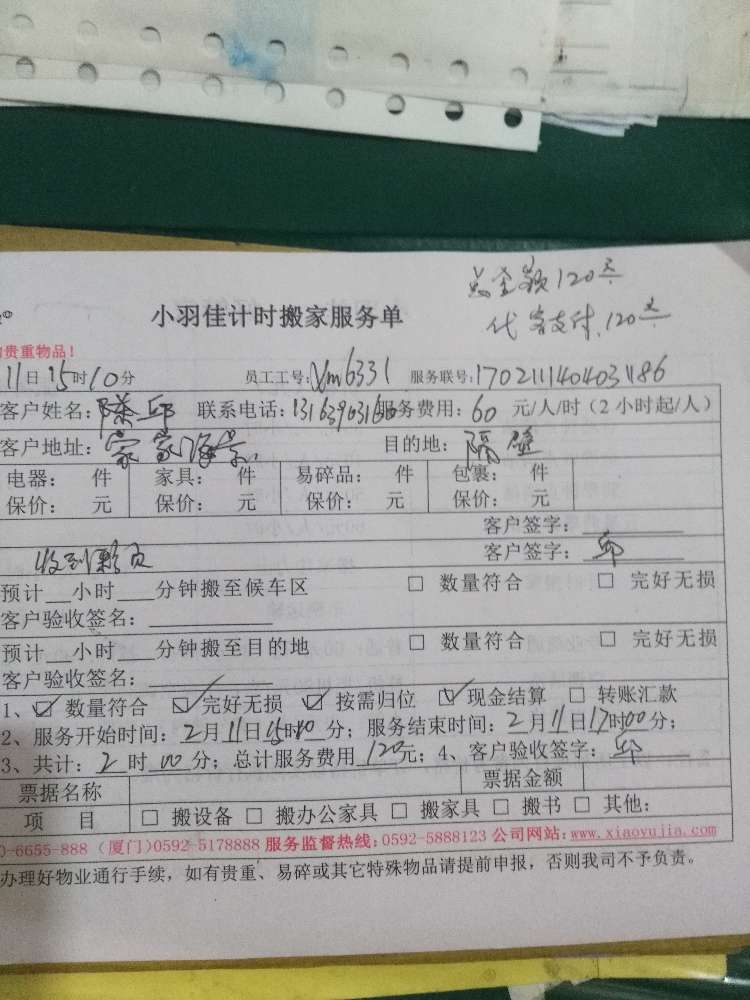 总金额120元
小羽佳计时搬家服务单
代客支付120元
贵重物品！
11日15时10分 员工工号：Xm6331 服务联号：
客户姓名：陈邱 联系电话： 服务费用：60元/人/时（2小时起/人）
客户地址： 目的地：隔壁
电器： 件 家具： 件 易碎品： 件 包裹： 件
保价： 元 保价： 元 保价： 元 保价： 元
客户签字：
客户签字：邱
预计 小时 分钟搬至候车区 □ 数量符合 □ 完好无损
客户验收签名：
预计 小时 分钟搬至目的地 □ 数量符合 □ 完好无损
客户验收签名：
1、☑ 数量符合 ☑ 完好无损 ☑ 按需归位 ☑ 现金结算 □ 转账汇款
2、服务开始时间：2月11日15时10分；服务结束时间：2月11日17时00分；
3、共计：2时00分；总计服务费用120元；4、客户验收签字：邱
票据名称 票据金额
项 目 □ 搬设备 □ 搬办公家具 □ 搬家具 □ 搬书 □ 其他：
0-6655-888（厦门）0592-5178888 服务监督热线：0592-5888123 公司网站：www.xiaoyujia.com
办理好物业通行手续，如有贵重、易碎或其它特殊物品请提前申报，否则我司不予负责。